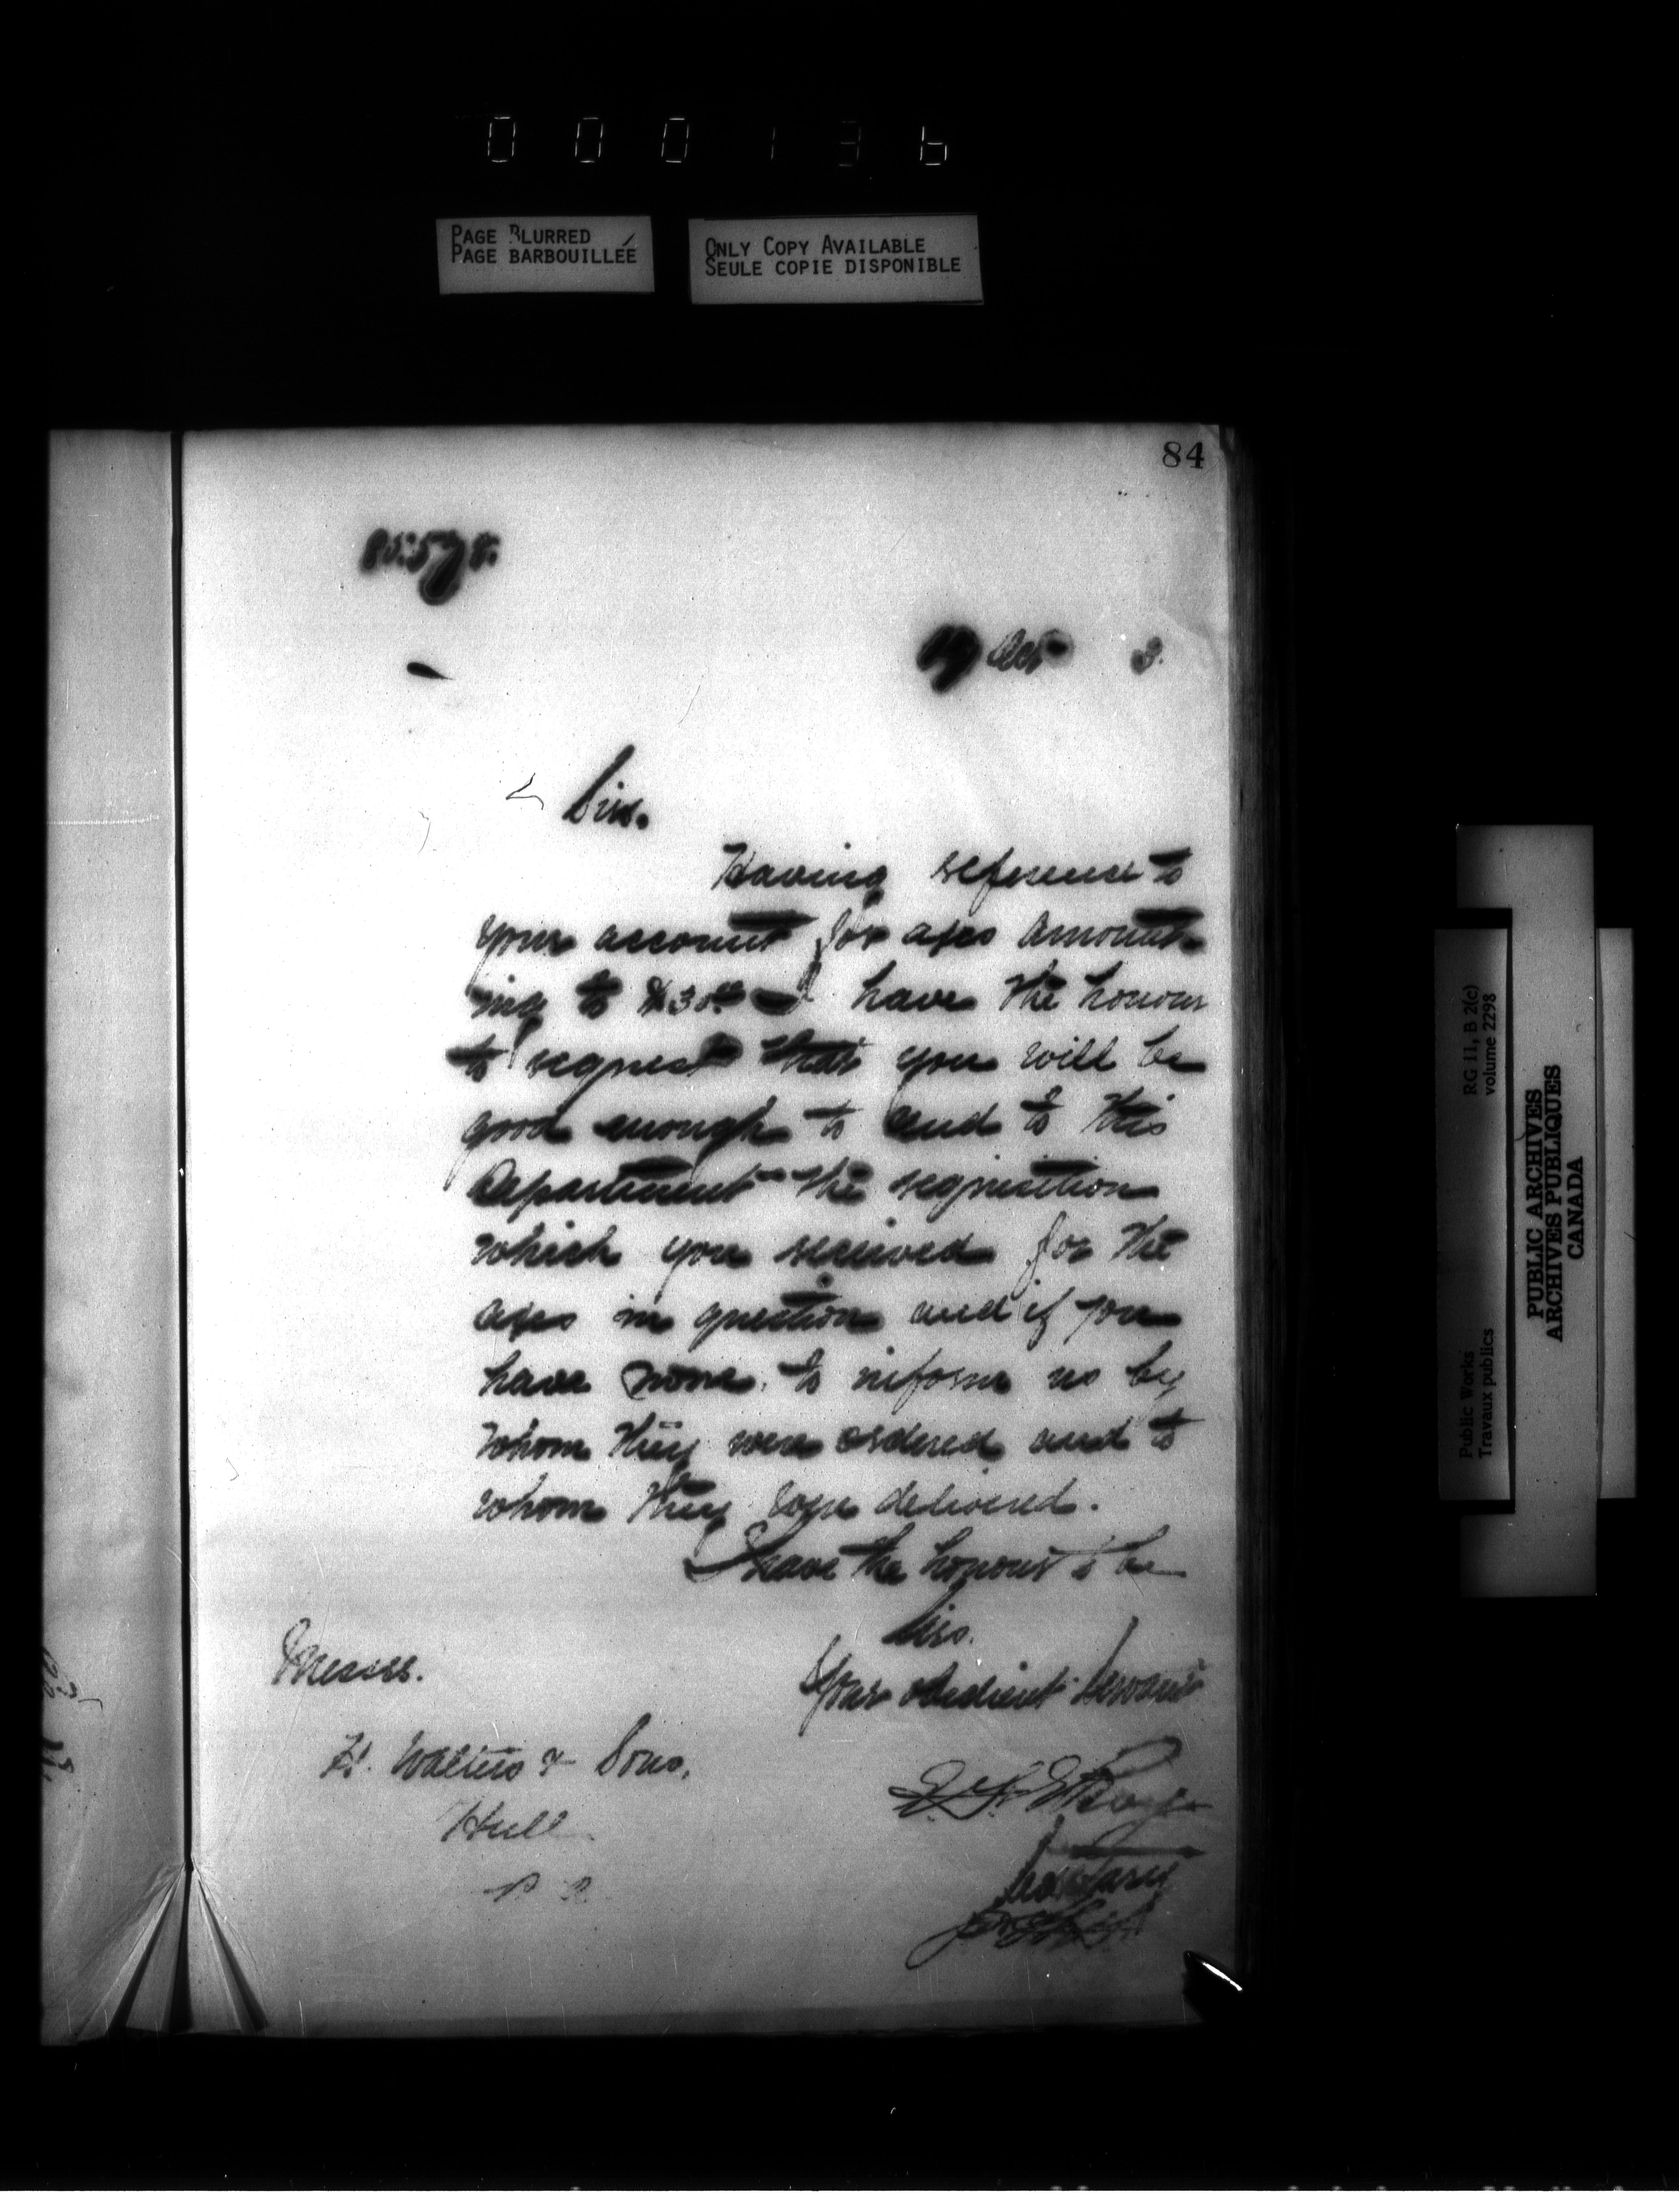 000136
PAGE BLURRED
PAGE BARBOUILLÉE
ONLY COPY AVAILABLE
SEULE COPIE DISPONIBLE
84
19 Oct 3.
Sirs.
Having reference to
your account for axes amount-
ing to I have the honour
to request that you will be
good enough to send to this
Department the requisition
which you received for the
axes in question and if you
have none, to inform us by
whom they were ordered and to
whom they were delivered.
I have the honour to be
Sirs.
Your obedient Servant
Messrs.
H. Walters & Sons,
Hull
P. Q.
Secretary
Public Works
Travaux publics
RG 11, B 2(c)
volume 2298
PUBLIC ARCHIVES
ARCHIVES PUBLIQUES
CANADA